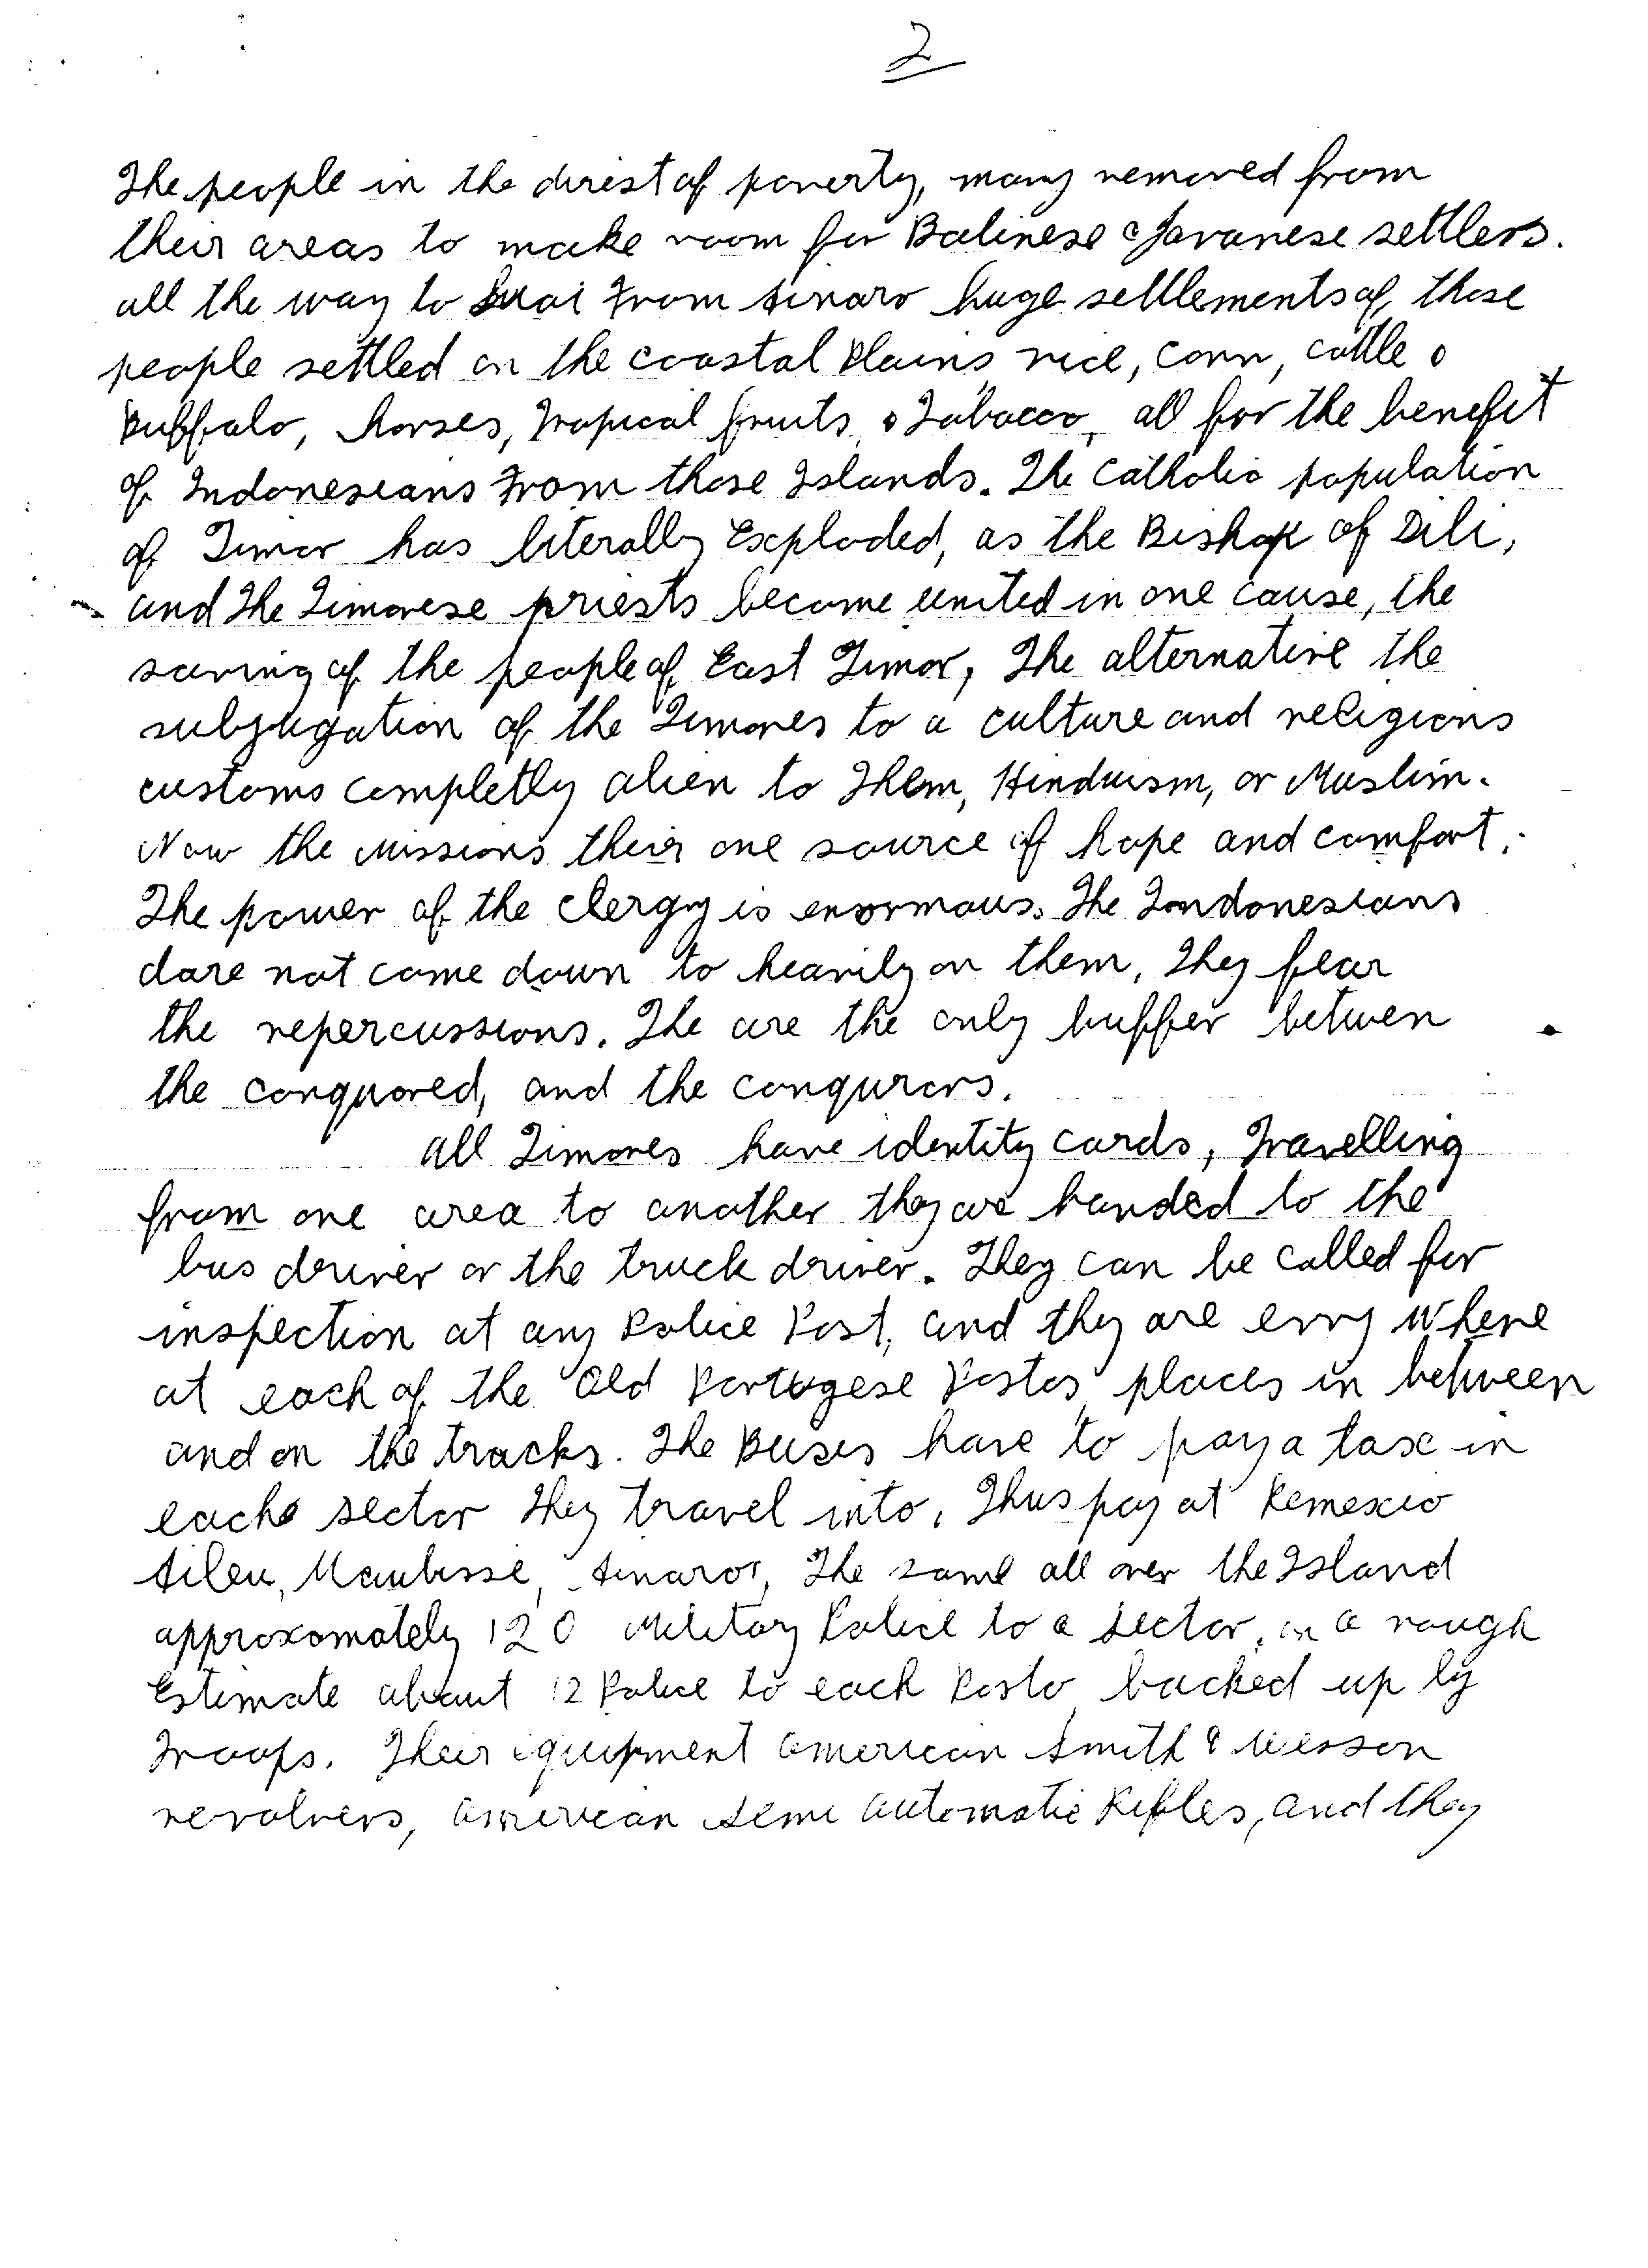 2
The people in the direst of poverty, many removed from
their areas to make room for Balinese & Javanese settlers.
all the way to Suai From Ainaro huge settlements of these
people settled on the coastal Plains, rice, corn, cattle &
Buffalo, horses, Tropical fruits & Tobacco, all for the benefit
of Indonesians From those Islands. The Catholic population
of Timor has literally Exploded, as the Bishop of Dili,
and The Timorese priests become united in one cause, the
saving of the people of East Timor, The alternative the
subjugation of the Timores to a culture and religions
customs completly alien to Them, Hinduism, or Muslim.
Now the Missions their one source of hope and comfort.
The power of the Clergy is enormous. The Indonesians
dare not come down to heavily on them, They fear
the repercussions. The are the only buffer betwen
the conquored, and the conqurors.
all Timores have identity cards, Travelling
from one area to another they are handed to the
bus driver or the truck driver. They can be called for
inspection at any Police Post, and they are evry Where
at each of the Old Portugese Postos, places in between
and on the tracks. The Buses have to pay a tax in
each sector They travel into, Thus pay at Remexio
Aileu, Maubisse, Ainaro, The same all over the Island
approxomately 120 Military Police to a sector, on a rough
Estimate about 12 Police to each Posto, backed up by
Troops. Their equipment American Smith & Wesson
revolvers, American Semi Automatic Rifles, and they